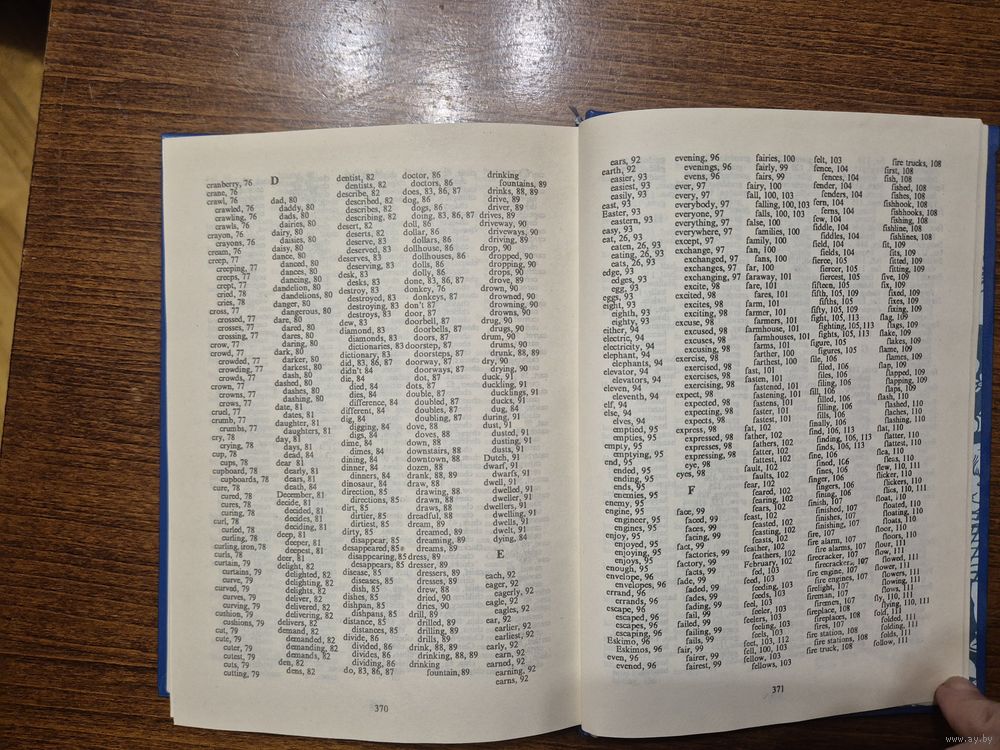 cranberry, 76
crane, 76
crawl, 76
crawled, 76
crawling, 76
crawls, 76
crayon, 76
crayons, 76
cream, 76
creep, 77
creeping, 77
creeps, 77
crept, 77
cried, 78
cries, 78
cross, 77
crossed, 77
crosses, 77
crossing, 77
crow, 77
crowd, 77
crowded, 77
crowding, 77
crowds, 77
crown, 77
crowns, 77
crows, 77
cruel, 77
crumb, 77
crumbs, 77
cry, 78
crying, 78
cup, 78
cups, 78
cupboard, 78
cupboards, 78
cure, 78
cured, 78
cures, 78
curing, 78
curl, 78
curled, 78
curling, 78
curling iron, 78
curls, 78
curtain, 79
curtains, 79
curve, 79
curved, 79
curves, 79
curving, 79
cushion, 79
cushions, 79
cut, 79
cute, 79
cuter, 79
cutest, 79
cuts, 79
cutting, 79
D
dad, 80
daddy, 80
dads, 80
dairies, 80
dairy, 80
daisies, 80
daisy, 80
dance, 80
danced, 80
dances, 80
dancing, 80
dandelion, 80
dandelions, 80
danger, 80
dangerous, 80
dare, 80
dared, 80
dares, 80
daring, 80
dark, 80
darker, 80
darkest, 80
dash, 80
dashed, 80
dashes, 80
dashing, 80
date, 81
dates, 81
daughter, 81
daughters, 81
day, 81
days, 81
dead, 84
dear, 81
dearly, 81
dears, 81
death, 84
December, 81
decide, 81
decided, 81
decides, 81
deciding, 81
deep, 81
deeper, 81
deepest, 81
deer, 81
delight, 82
delighted, 82
delighting, 82
delights, 82
deliver, 82
delivered, 82
delivering, 82
delivers, 82
demand, 82
demanded, 82
demanding, 82
demands, 82
den, 82
dens, 82
dentist, 82
dentists, 82
describe, 82
described, 82
describes, 82
describing, 82
desert, 82
deserts, 82
deserve, 83
deserved, 83
deserves, 83
deserving, 83
desk, 83
desks, 83
destroy, 83
destroyed, 83
destroying, 83
destroys, 83
dew, 83
diamond, 83
diamonds, 83
dictionaries, 83
dictionary, 83
did, 83, 86, 87
didn't, 87
die, 84
died, 84
dies, 84
difference, 84
different, 84
dig, 84
digging, 84
digs, 84
dime, 84
dimes, 84
dining, 84
dinner, 84
dinners, 84
dinosaur, 84
direction, 85
directions, 85
dirt, 85
dirtier, 85
dirtiest, 85
dirty, 85
disappear, 85
disappeared, 85
disappearing, 85
disappears, 85
disease, 85
diseases, 85
dish, 85
dishes, 85
dishpan, 85
dishpans, 85
distance, 85
distances, 85
divide, 86
divided, 86
divides, 86
dividing, 86
do, 83, 86, 87
doctor, 86
doctors, 86
does, 83, 86, 87
dog, 86
dogs, 86
doing, 83, 86, 87
doll, 86
dollar, 86
dollars, 86
dollhouse, 86
dollhouses, 86
dolls, 86
dolly, 86
done, 83, 86, 87
donkey, 76
donkeys, 87
don't, 87
door, 87
doorbell, 87
doorbells, 87
doors, 87
doorstep, 87
doorsteps, 87
doorway, 87
doorways, 87
dot, 87
dots, 87
double, 87
doubled, 87
doubles, 87
doubling, 87
dove, 88
doves, 88
down, 88
downstairs, 88
downtown, 88
dozen, 88
drank, 88, 89
draw, 88
drawing, 88
drawn, 88
draws, 88
dreadful, 88
dream, 89
dreamed, 89
dreaming, 89
dreams, 89
dress, 89
dresser, 89
dressers, 89
dresses, 89
drew, 88
dried, 90
dries, 90
drill, 89
drilled, 89
drilling, 89
drills, 89
drink, 88, 89
drinking, 88, 89
drinking
fountain, 89
drinking
fountains, 89
drinks, 88, 89
drive, 89
driver, 89
drives, 89
driveway, 90
driveways, 90
driving, 89
drop, 90
dropped, 90
dropping, 90
drops, 90
drove, 89
drown, 90
drowned, 90
drowning, 90
drowns, 90
drug, 90
drugs, 90
drum, 90
drums, 90
drunk, 88, 89
dry, 90
drying, 90
duck, 91
duckling, 91
ducklings, 91
ducks, 91
dug, 84
during, 91
dust, 91
dusted, 91
dusting, 91
dusts, 91
Dutch, 91
dwarf, 91
dwarfs, 91
dwell, 91
dwelled, 91
dweller, 91
dwellers, 91
dwelling, 91
dwells, 91
dwelt, 91
dying, 84
E
each, 92
eager, 92
eagerly, 92
eagle, 92
eagles, 92
ear, 92
earlier, 92
earliest, 92
early, 92
earn, 92
earned, 92
earning, 92
earns, 92
370
ears, 92
earth, 92
easier, 93
easiest, 93
easily, 93
east, 93
Easter, 93
eastern, 93
easy, 93
eat, 26, 93
eaten, 26, 93
eating, 26, 93
eats, 26, 93
edge, 93
edges, 93
egg, 93
eggs, 93
eight, 93
eighth, 93
eighty, 93
either, 94
electric, 94
electricity, 94
elephant, 94
elephants, 94
elevator, 94
elevators, 94
eleven, 94
eleventh, 94
elf, 94
else, 94
elves, 94
emptied, 95
empties, 95
empty, 95
emptying, 95
end, 95
ended, 95
ending, 95
ends, 95
enemies, 95
enemy, 95
engine, 95
engineer, 95
engines, 95
enjoy, 95
enjoyed, 95
enjoying, 95
enjoys, 95
enough, 95
envelope, 96
envelopes, 96
errand, 96
errands, 96
escape, 96
escaped, 96
escapes, 96
escaping, 96
Eskimo, 96
Eskimos, 96
even, 96
evened, 96
evening, 96
evenings, 96
evens, 96
ever, 97
every, 97
everybody, 97
everyone, 97
everything, 97
everywhere, 97
except, 97
exchange, 97
exchanged, 97
exchanges, 97
exchanging, 97
excite, 98
excited, 98
excites, 98
exciting, 98
excuse, 98
excused, 98
excuses, 98
excusing, 98
exercise, 98
exercised, 98
exercises, 98
exercising, 98
expect, 98
expected, 98
expecting, 98
expects, 98
express, 98
expressed, 98
expresses, 98
expressing, 98
eye, 98
eyes, 98
F
face, 99
faced, 99
faces, 99
facing, 99
fact, 99
factories, 99
factory, 99
facts, 99
fade, 99
faded, 99
fades, 99
fading, 99
fail, 99
failed, 99
failing, 99
fails, 99
fair, 99
fairer, 99
fairest, 99
fairies, 100
fairly, 99
fairs, 99
fairy, 100
fall, 100, 103
falling, 100, 103
falls, 100, 103
false, 100
families, 100
family, 100
fan, 100
fans, 100
far, 100
faraway, 101
fare, 101
fares, 101
farm, 101
farmer, 101
farmers, 101
farmhouse, 101
farmhouses, 101
farms, 101
farther, 100
farthest, 100
fast, 101
fasten, 101
fastened, 101
fastening, 101
fastens, 101
faster, 101
fastest, 101
fat, 102
father, 102
fathers, 102
fatter, 102
fattest, 102
fault, 102
faults, 102
fear, 102
feared, 102
fearing, 102
fears, 102
feast, 102
feasted, 102
feasting, 102
feasts, 102
feather, 102
feathers, 102
February, 102
fed, 103
feed, 103
feeding, 103
feeds, 103
feel, 103
feeler, 103
feelers, 103
feeling, 103
feels, 103
feet, 103, 112
fell, 100, 103
fellow, 103
fellows, 103
felt, 103
fence, 104
fences, 104
fender, 104
fenders, 104
fern, 104
ferns, 104
few, 104
fiddle, 104
fiddles, 104
field, 104
fields, 104
fierce, 105
fiercer, 105
fiercest, 105
fifteen, 105
fifth, 105
fifths, 105
fifty, 105
fight, 105, 113
fighting, 105, 113
fights, 105, 113
figure, 105
figures, 105
file, 106
filed, 106
files, 106
filing, 106
fill, 106
filled, 106
filling, 106
fills, 106
finally, 106
find, 106, 113
finding, 106, 113
finds, 106, 113
fine, 106
fined, 106
fines, 106
finger, 106
fingers, 106
fining, 106
finish, 107
finished, 107
finishes, 107
finishing, 107
fire, 107
fire alarm, 107
fire alarms, 107
firecracker, 107
firecrackers, 107
fire engine, 107
fire engines, 107
firelight, 107
fireman, 107
firemen, 107
fireplace, 108
fireplaces, 108
fires, 107
fire station, 108
fire stations, 108
fire truck, 108
fire trucks, 108
first, 108
fish, 108
fished, 108
fishes, 108
fishhook, 108
fishhooks, 108
fishing, 108
fishline, 108
fishlines, 108
fit, 109
fits, 109
fitted, 109
fitting, 109
five, 109
fix, 109
fixed, 109
fixes, 109
fixing, 109
flag, 109
flags, 109
flake, 109
flakes, 109
flame, 109
flames, 109
flap, 109
flapped, 109
flapping, 109
flaps, 109
flash, 110
flashed, 110
flashes, 110
flashing, 110
flat, 110
flatter, 110
flattest, 110
flea, 110
fleas, 110
flew, 110, 111
flicker, 110
flickers, 110
flies, 110, 111
float, 110
floated, 110
floating, 110
floats, 110
floor, 110
floors, 110
flour, 111
flow, 111
flowed, 111
flower, 111
flowers, 111
flowing, 111
flows, 111
fly, 110, 111
flying, 110, 111
fold, 111
folded, 111
folding, 111
folds, 111
follow, 111
371
www.ay.by